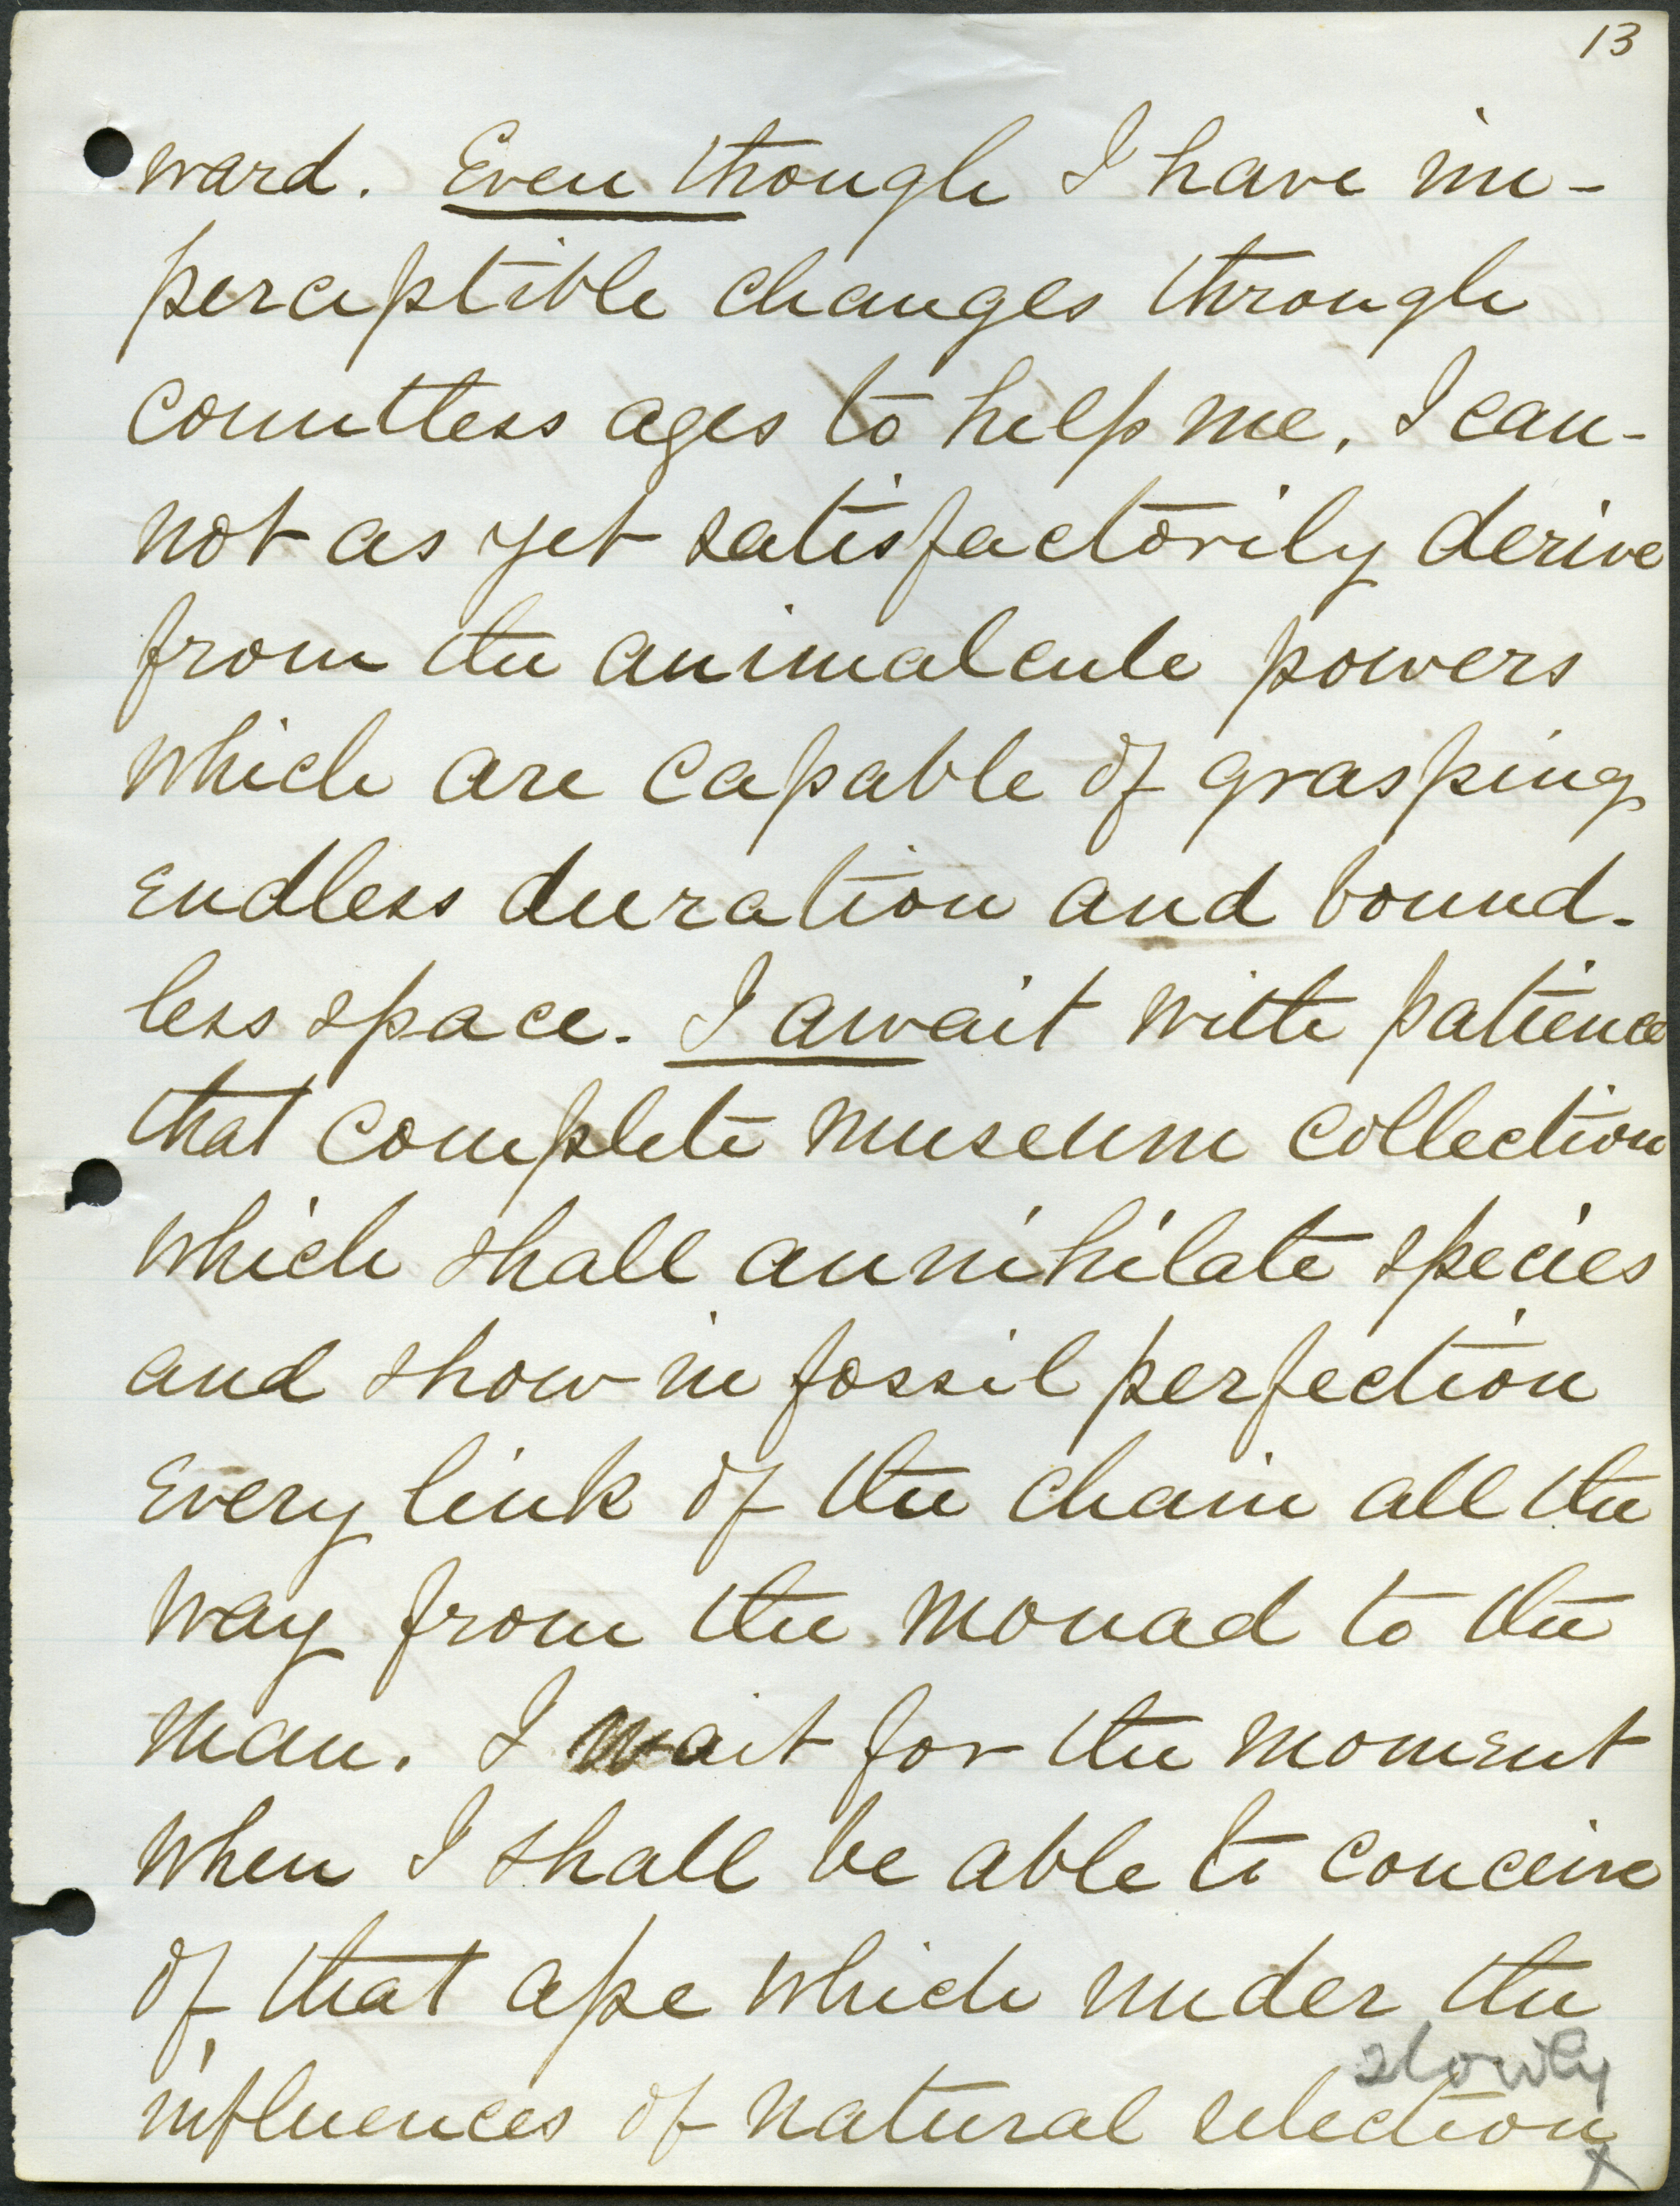 13
ward. Even though I have im-
perceptible changes through
countless ages to help me, I can-
not as yet satisfactorily derive
from the animalcule powers
which are capable of grasping
endless duration and bound-
less space. I await with patience
that complete museum collection
which shall annihilate species
and show in fossil perfection
every link of the chain all the
way from the monad to the
man. I wait for the moment
when I shall be able to conceive
of that ape which under the
slowly
influences of natural selection
x